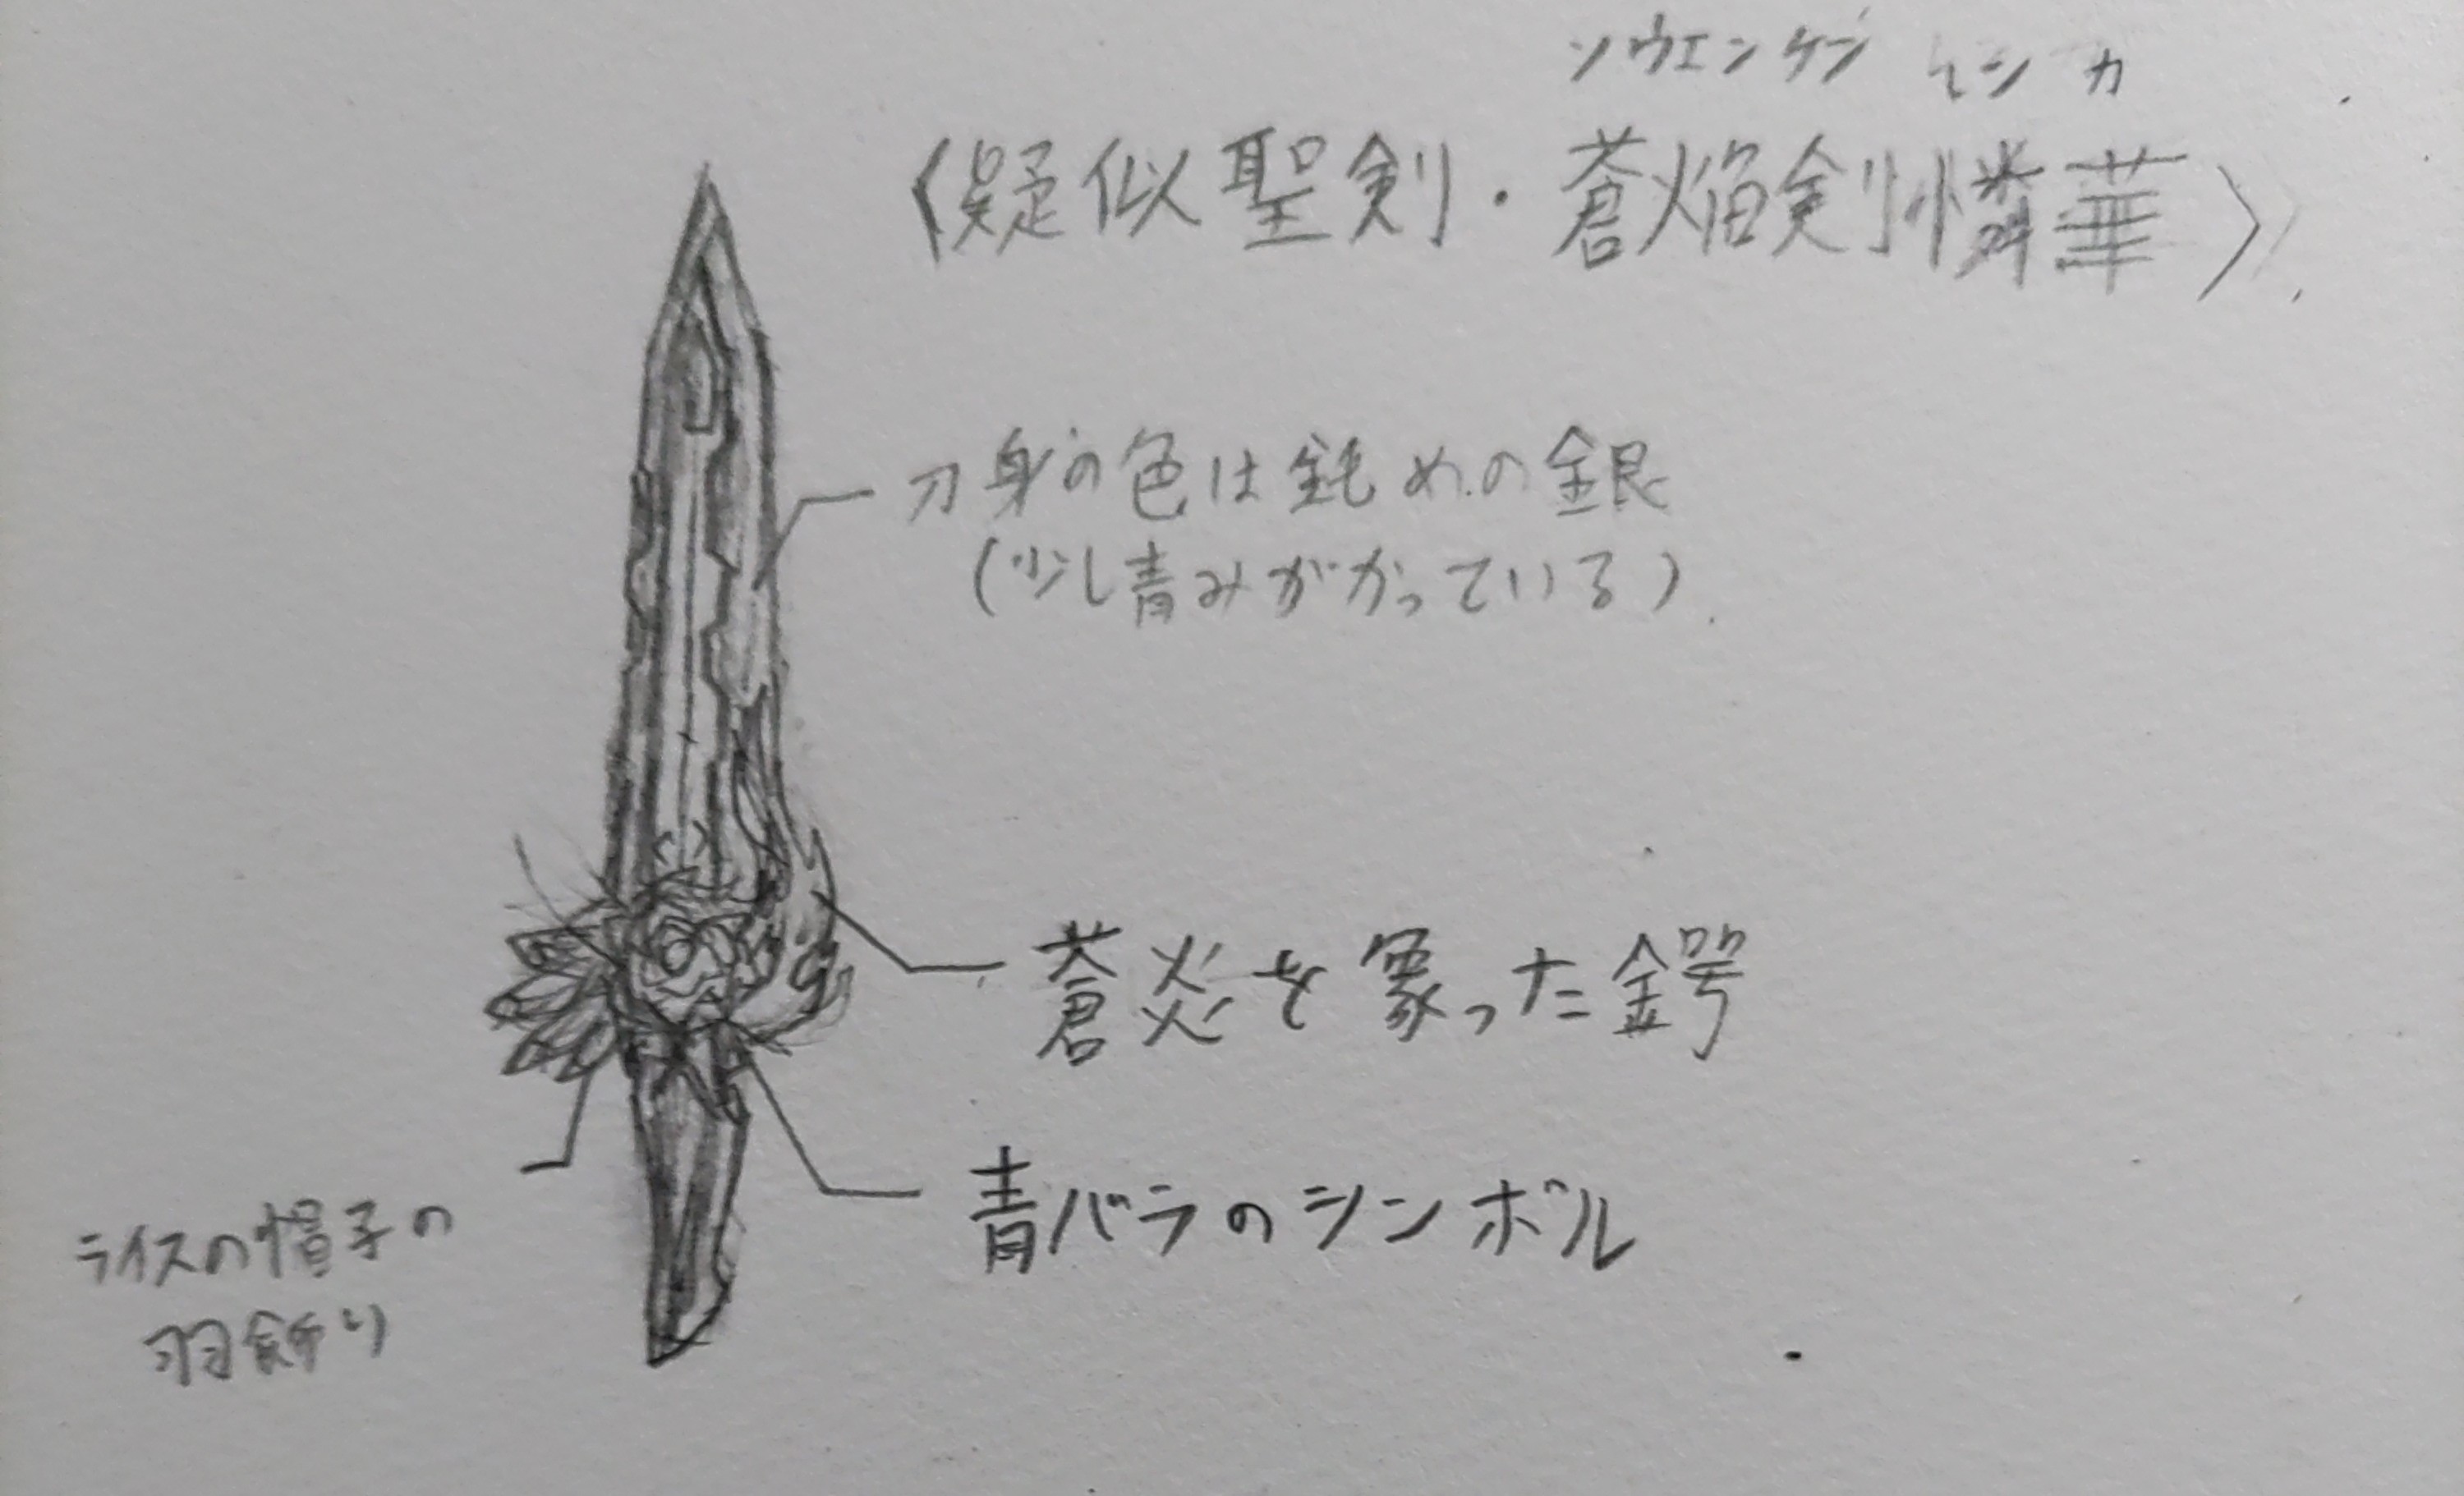 ソウエンケン
《擬似聖剣・蒼焔剣憐華》
刀身の色は鈍めの銀
(少し青みがかっている)
蒼炎を象った鍔
青バラのシンボル
ライスの帽子の
羽飾り